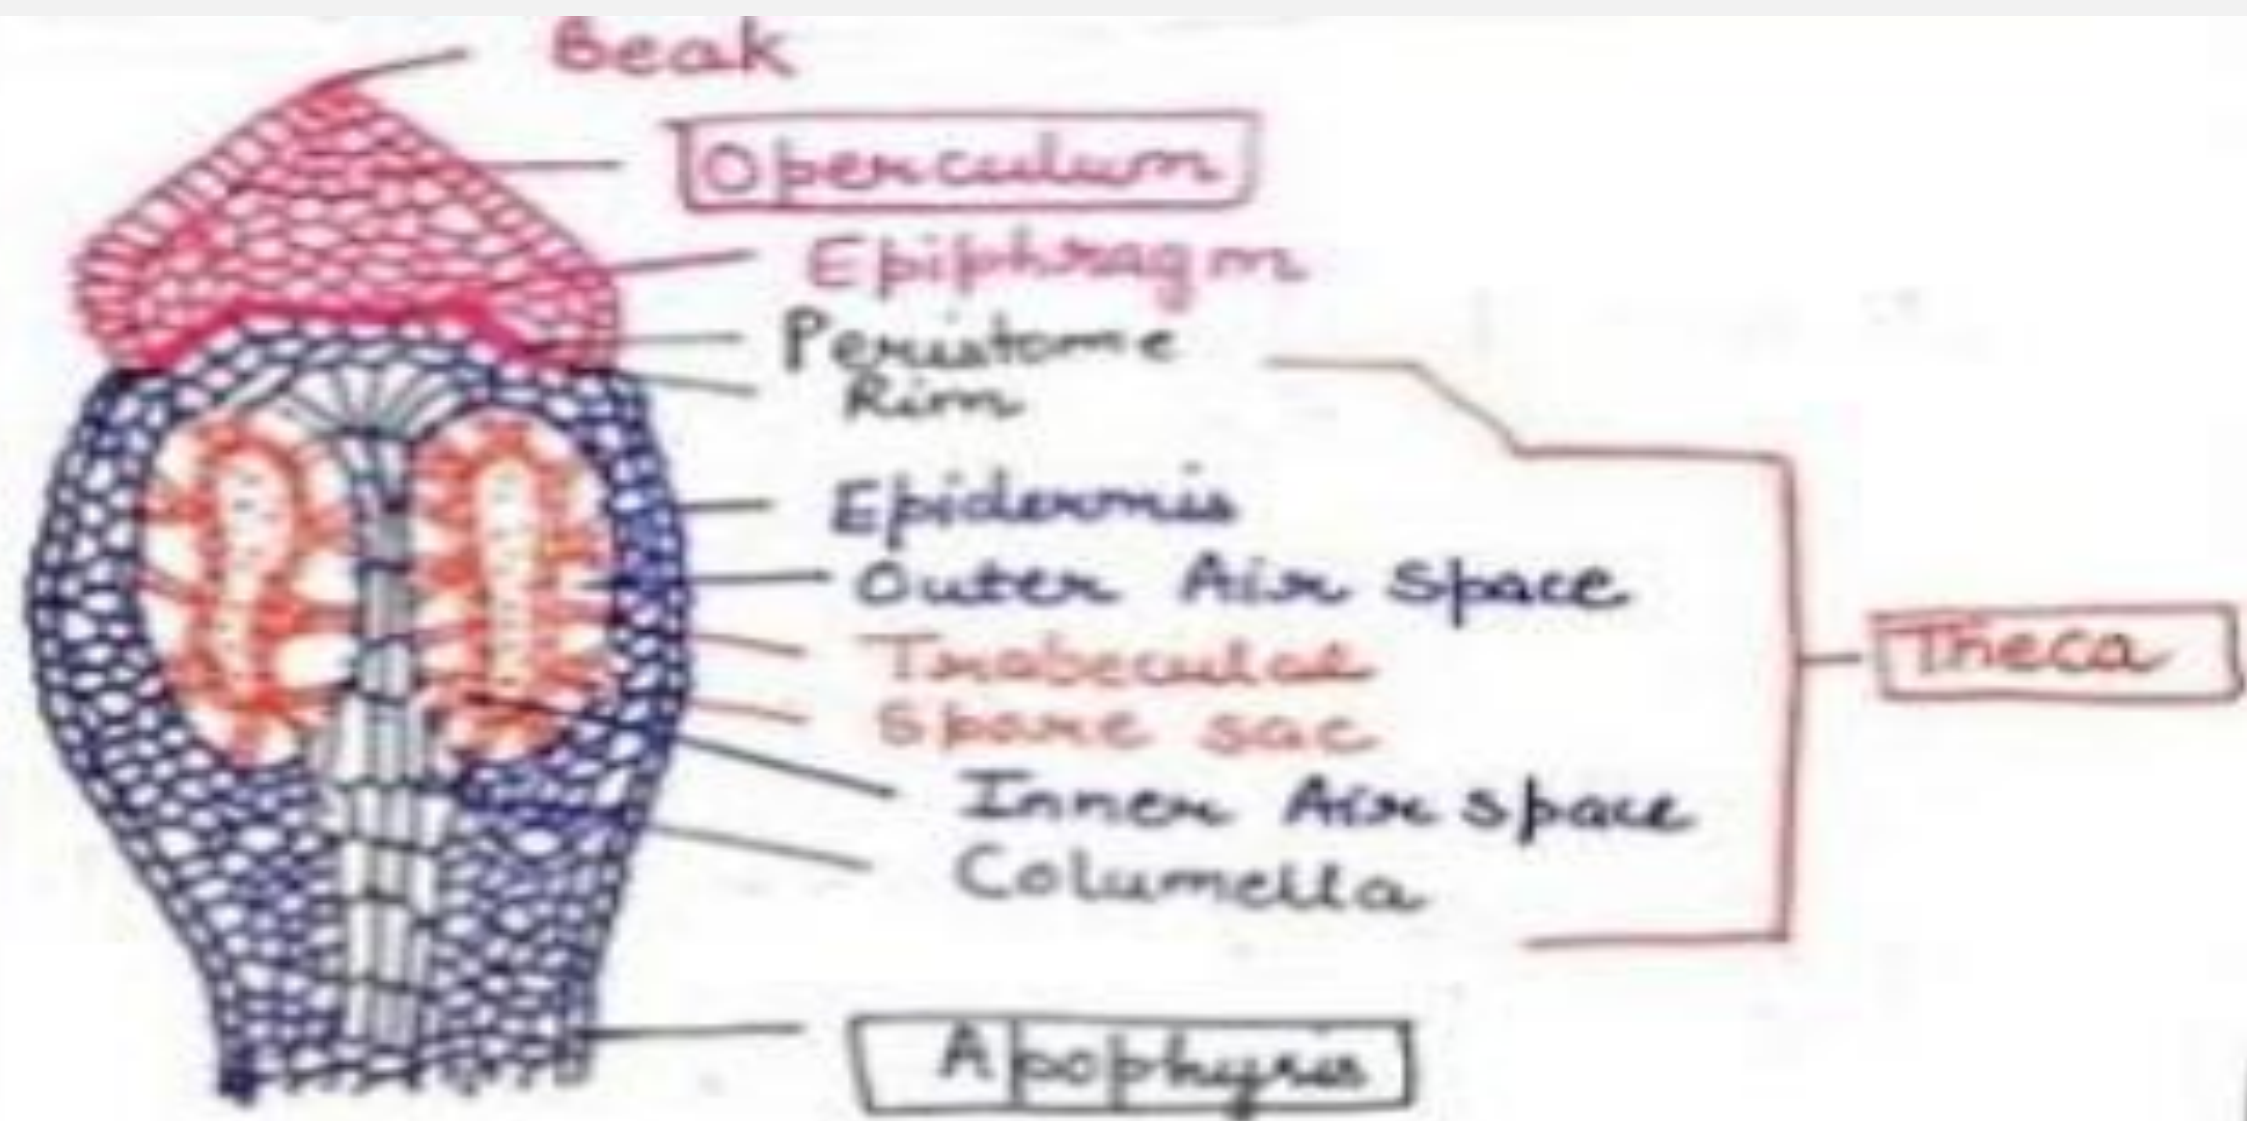 Beak
Operculum
Epiphragm
Peristome
Rim
Epidermis
Outer Air Space
Trabeculae
Spore sac
Theca
Inner Air space
Columella
Apophysis